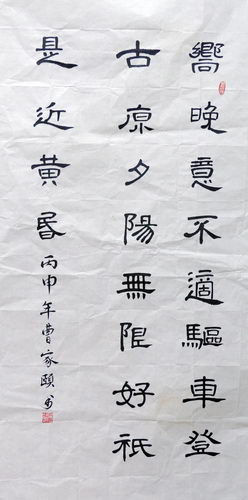 嚮晚意不適驅車登
古原夕陽無限好祇
是近黄昏
丙申年曹家頤書